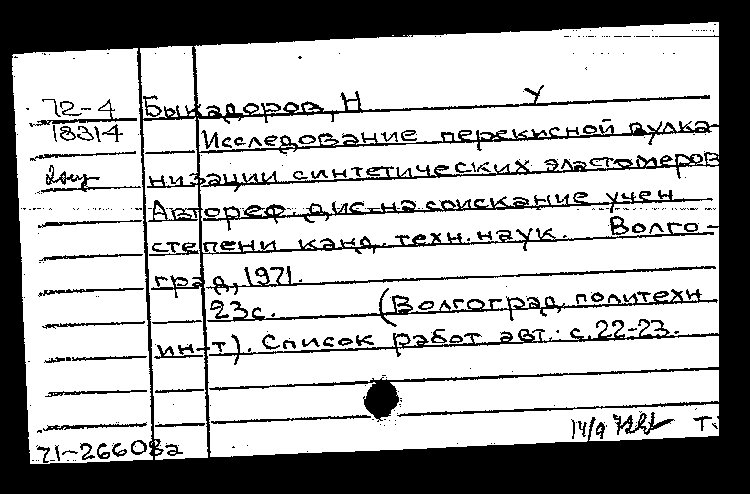 72-4 Быкадоров, Н У
18314 Исследование перекисной вулка-
низации синтетических эластомеров
Автореф. дис. на соискание учен
степени канд. техн. наук. Волго-
град, 1971.
23с. (Волгоград. политехн
ин-т). Список работ авт.: с. 22-23.
14/9 Т.
71-26608а